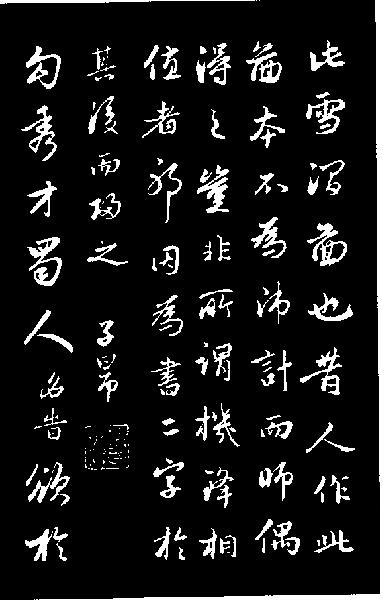 此雪圖也昔人作此
圖本不為沛計而師偶
得之豈非所謂機鋒相
值者邪因為書二字於
其後而歸之 子昂
勾秀才蜀人名昔於